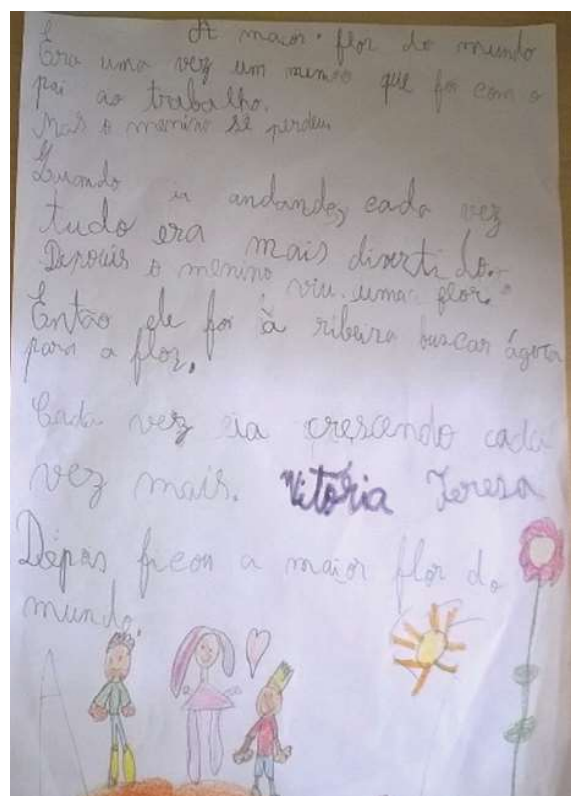 A maior flor do mundo
Era uma vez um menino que foi com o
pai ao trabalho.
Mas o menino se perdeu
Quando ia andando, cada vez
tudo era mais divertido.
Depouis o menino viu uma flor.
Então ele foi à ribeira buscar ágoua
para a flor.
Cada vez ia crescendo cada
vez mais. Vitória Teresa
Dépois ficou a maior flor do
mundo.